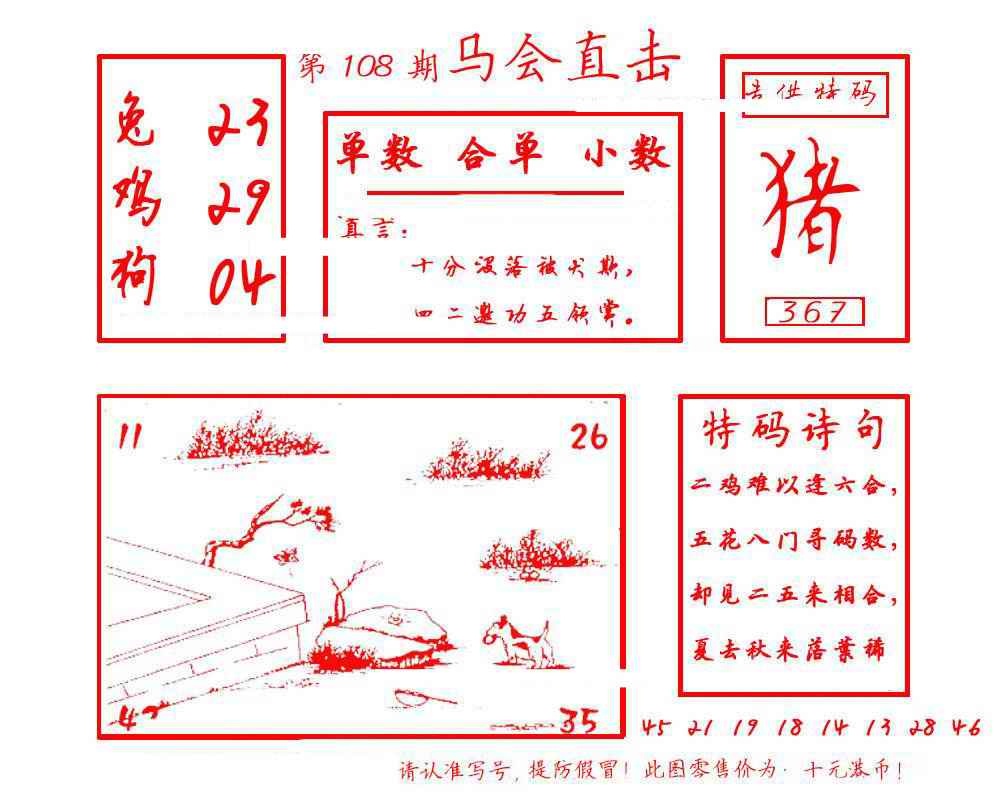 第 108 期 马会直击
兔 23
鸡 29
狗 04
单数 合单 小数
真言：
十分没落被犬欺，
四二邀功五领赏。
供特码
猪
367
11 26
35
特码诗句
二鸡难以逢六合，
五花八门寻码数，
却见二五来相合，
夏去秋来落葉稀
45 21 19 18 14 13 28 46
请认准写号，提防假冒！此图零售价为·十元港币！